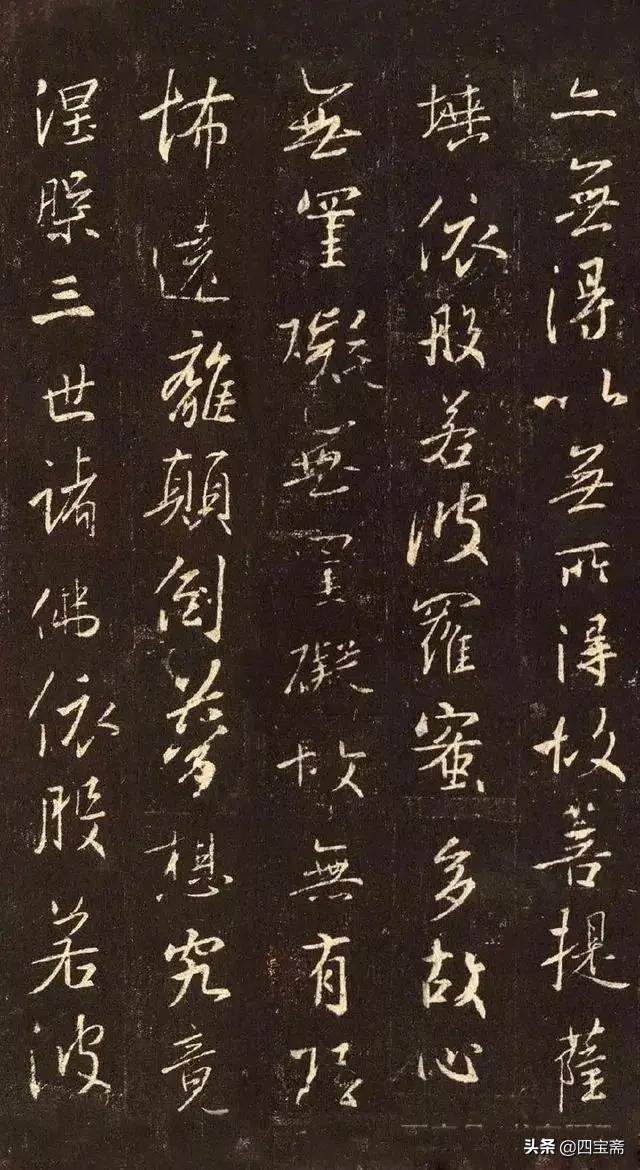 亦無得以無所得故菩提薩
埵依般若波羅蜜多故心
無罣礙無罣礙故無有恐
怖遠離顛倒夢想究竟
涅槃三世諸佛依般若波
头条 @四宝斋